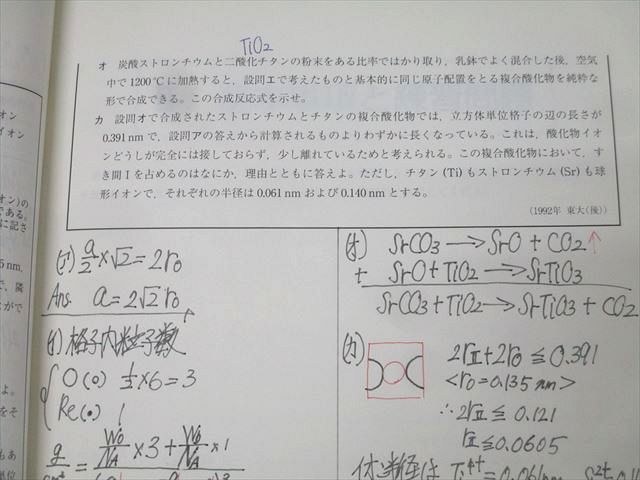 TiO₂
オ 炭酸ストロンチウムと二酸化チタンの粉末をある比率ではかり取り，乳鉢でよく混合した後，空気
中で1200℃に加熱すると，設問エで考えたものと基本的に同じ原子配置をとる複合酸化物を純粋な
形で合成できる。この合成反応式を示せ。
カ 設問オで合成されたストロンチウムとチタンの複合酸化物では，立方体単位格子の辺の長さが
0.391 nmで，設問アの答えから計算されるものよりわずかに長くなっている。これは，酸化物イオ
ンどうしが完全には接しておらず，少し離れているためと考えられる。この複合酸化物において，す
き間Ⅰを占めるのはなにか，理由とともに答えよ。ただし，チタン(Ti)もストロンチウム(Sr)も球
形イオンで，それぞれの半径は0.061 nmおよび0.140 nmとする。
(1992年 東大(後))
(ア) a/2 × √2 = 2r₀
Ans. a = 2√2 r₀
(イ) 格子内粒子数
O (○) 1/2 × 6 = 3
Re (●) 1
(オ) SrCO₃ → SrO + CO₂ ↑
+ SrO + TiO₂ → SrTiO₃
SrCO₃ + TiO₂ → SrTiO₃ + CO₂
(カ)
2rⅡ + 2r₀ ≦ 0.391
<r₀ = 0.135 nm>
∴ 2rⅡ ≦ 0.121
rⅡ ≦ 0.0605